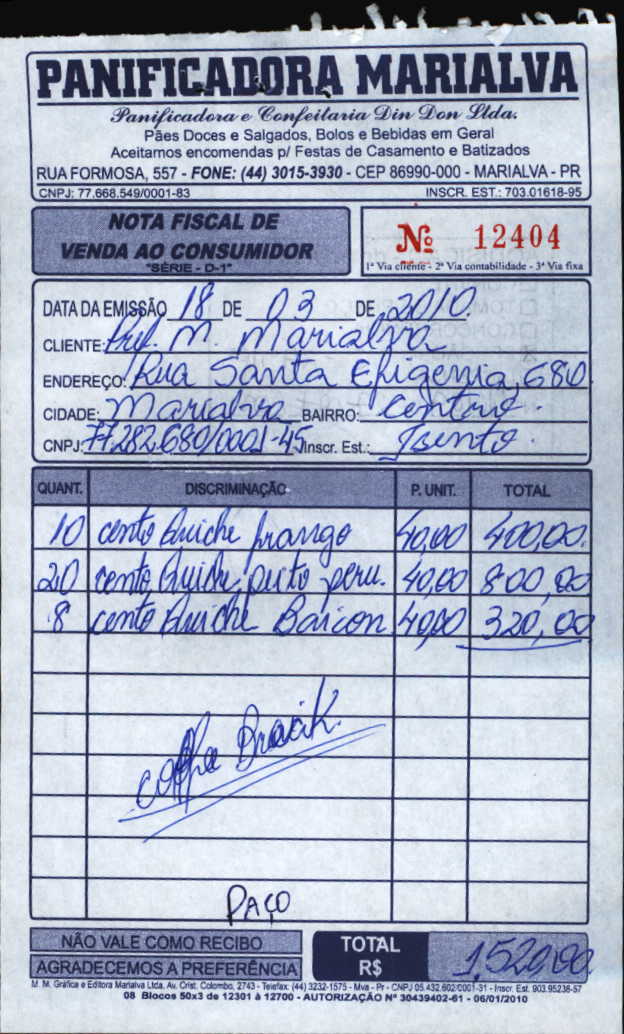 PANIFICADORA MARIALVA
Panificadora e Confeitaria Din Don Ltda.
Pães Doces e Salgados, Bolos e Bebidas em Geral
Aceitamos encomendas p/ Festas de Casamento e Batizados
RUA FORMOSA, 557 - FONE: (44) 3015-3930 - CEP 86990-000 - MARIALVA - PR
CNPJ: 77.668.549/0001-83 INSCR. EST.: 703.01618-95
NOTA FISCAL DE
VENDA AO CONSUMIDOR
"SÉRIE - D-1"
Nº 12404
1ª Via cliente - 2ª Via contabilidade - 3ª Via fixa
DATA DA EMISSÃO 18 DE 03 DE 2010.
CLIENTE: Pref. M. Marialva
ENDEREÇO: Rua Santa Efigenia, 680
CIDADE: Marialva BAIRRO: Centro.
CNPJ: 77.282.680/0001-45 Inscr. Est.: Isento.
QUANT. DISCRIMINAÇÃO P. UNIT. TOTAL
10 cento Quiche frango 40,00 400,00.
20 cento Quiche peito peru. 40,00 800,00
8 cento Quiche Baicon 40,00 320,00
coffee Breack.
PAÇO
NÃO VALE COMO RECIBO
AGRADECEMOS A PREFERÊNCIA
TOTAL R$ 1,520,00
M. M. Gráfica e Editora Marialva Ltda. Av. Crist. Colombo, 2743 - Telefax: (44) 3232-1575 - Mva - Pr - CNPJ 05.432.602/0001-31 - Inscr. Est. 903.95238-57
08 Blocos 50x3 de 12301 à 12700 - AUTORIZAÇÃO Nº 30439402-61 - 06/01/2010